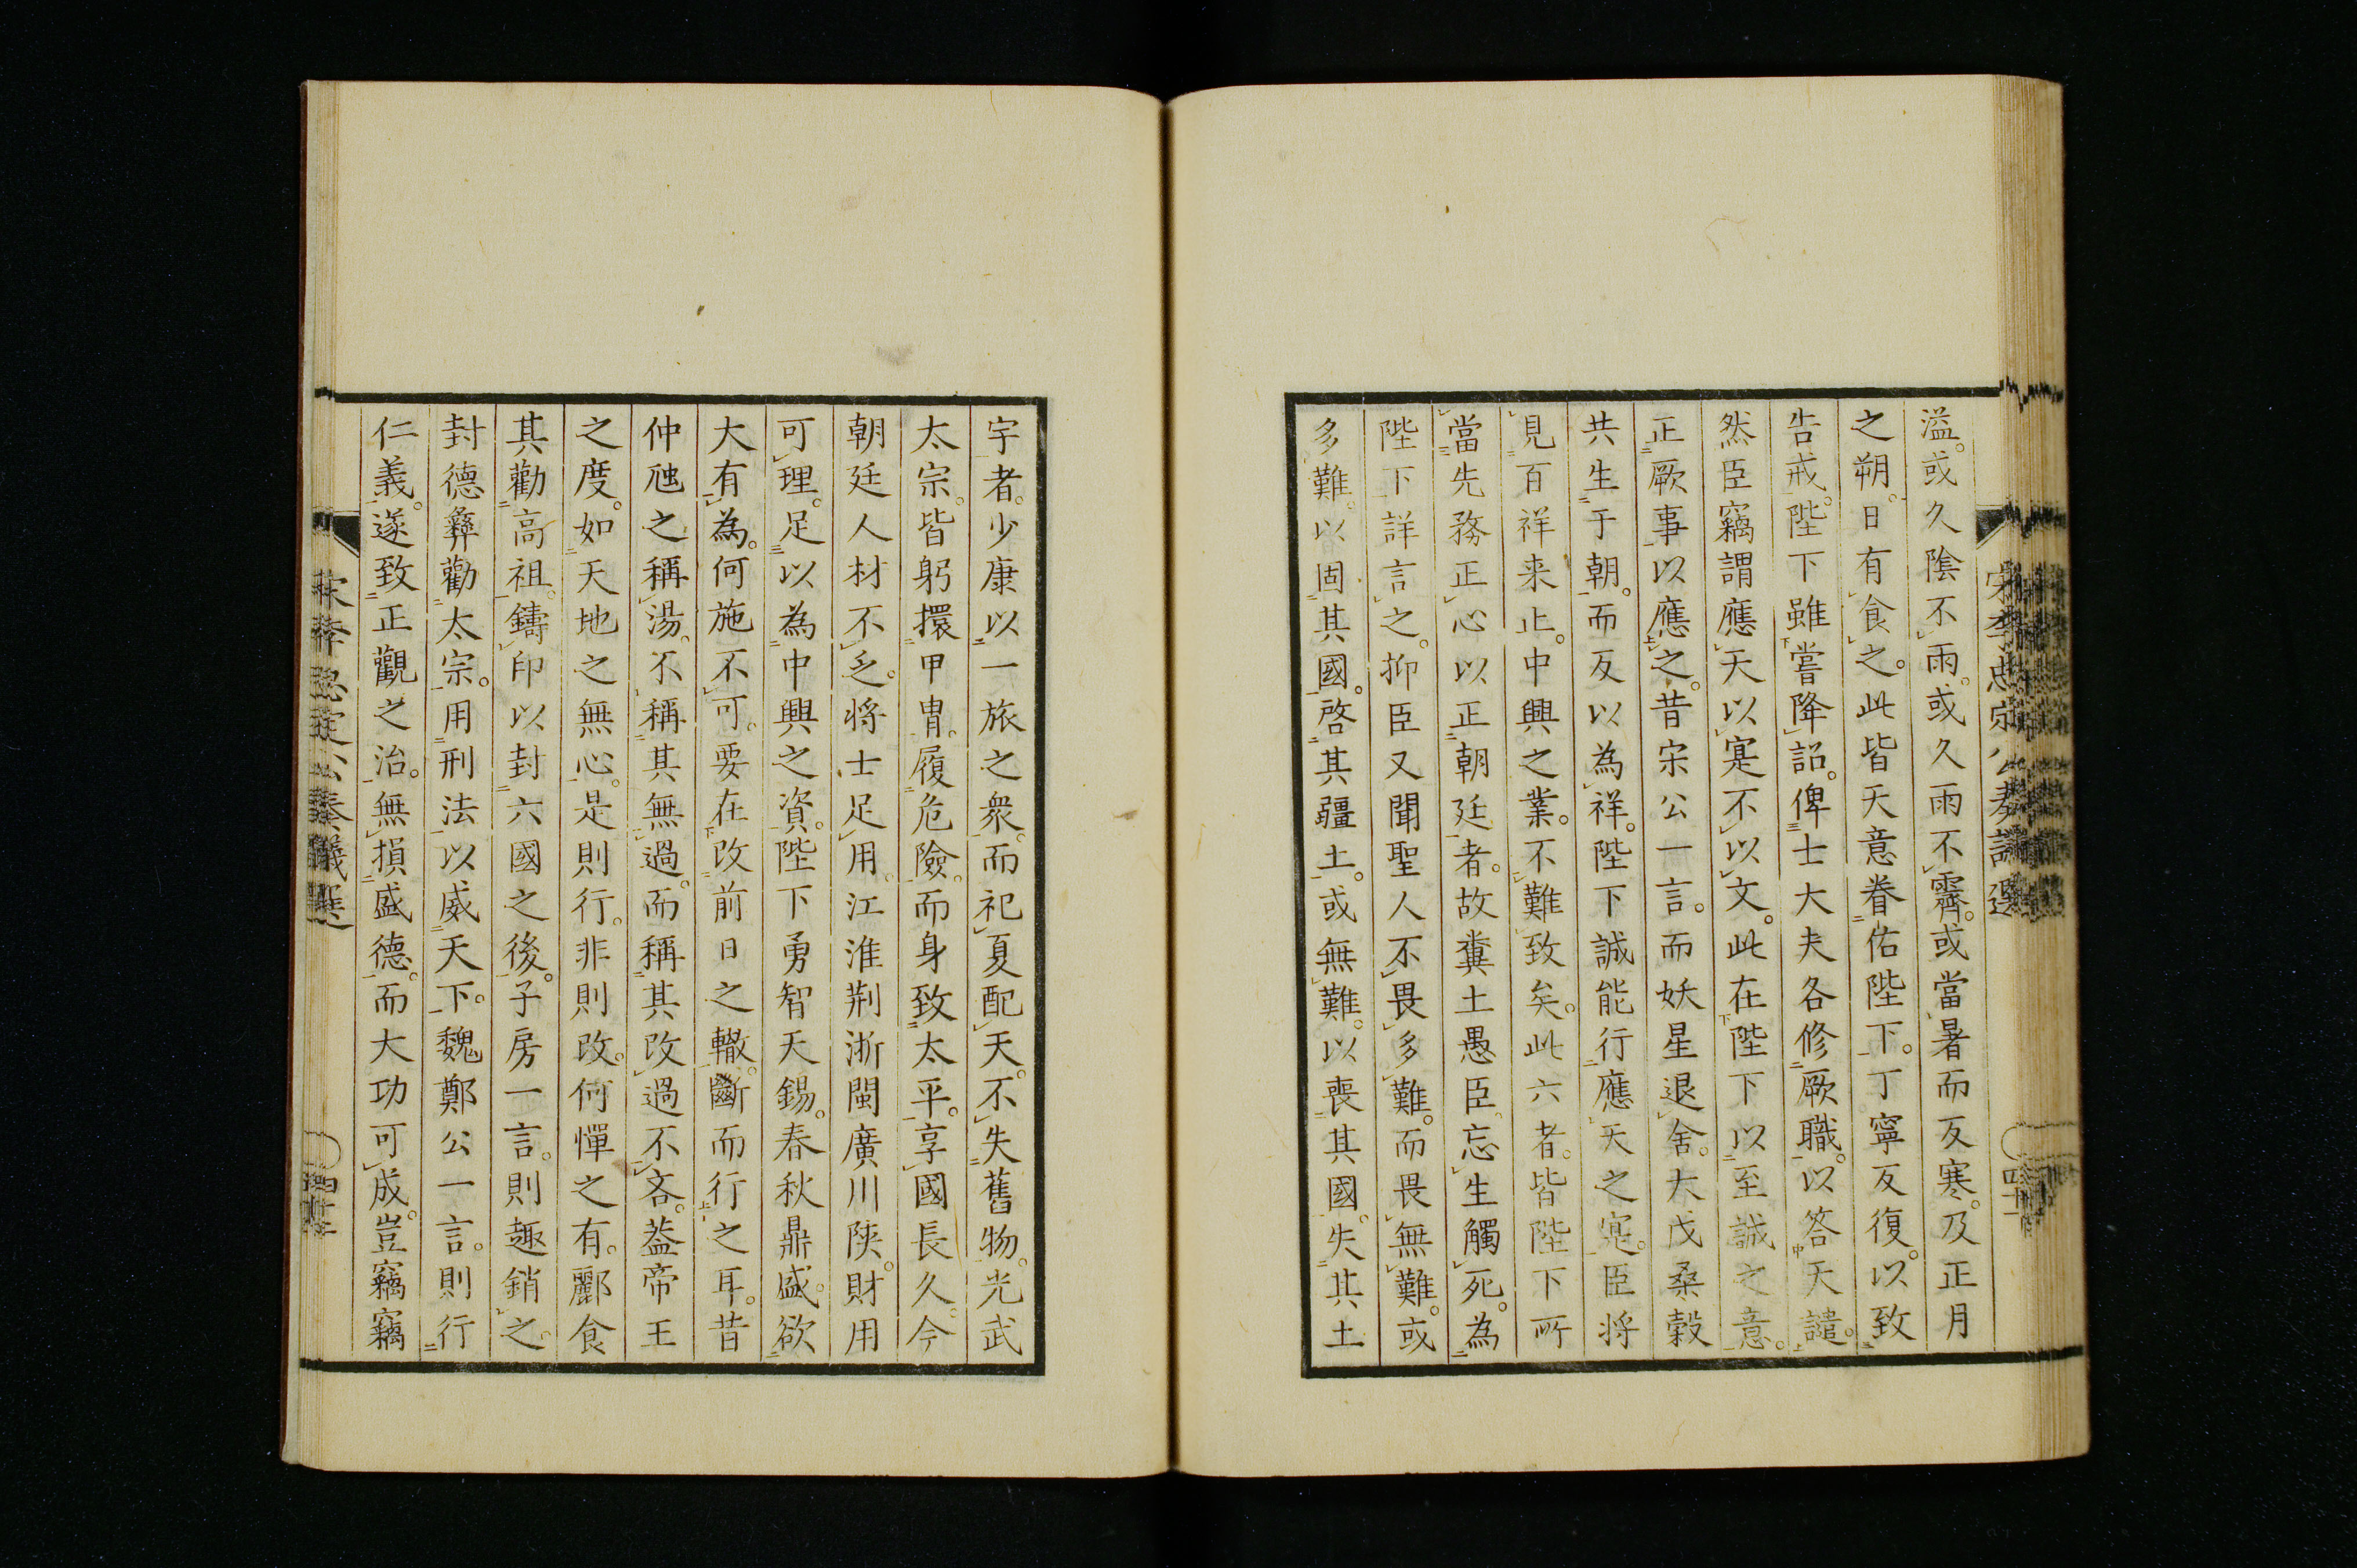 溢。或久陰不雨。或久雨不霽。或當暑而反寒。及正月
之朔。日有食之。此皆天意眷佑陛下。丁寧反復。以致
告戒。陛下雖嘗降詔。俾士大夫各修厥職。以答天譴。
然臣竊謂應天以寔不以文。此在陛下以至誠之意。
正厥事以應之。昔宋公一言。而妖星退舍。大戊桑榖
共生于朝。而反以為祥。陛下誠能行應天之寔。臣将
見百祥来止。中興之業。不難致矣。此六者。皆陛下所
當先務正心以正朝廷者。故糞土愚臣。忘生觸死。為
陛下詳言之。抑臣又聞聖人不畏多難。而畏無難。或
多難。以固其國。啓其疆土。或無難。以喪其國。失其土
宇者。少康以一旅之衆。而祀夏配天。不失舊物。光武
太宗。皆躬擐甲胄。履危險。而身致太平。享國長久。今
朝廷人材不乏。将士足用。江淮荆浙閩廣川陝。財用
可理。足以為中興之資。陛下勇智天錫。春秋鼎盛。欲
大有為。何施不可。要在改前日之轍。斷而行之耳。昔
仲虺之稱湯。不稱其無過。而稱其改過不吝。葢帝王
之度。如天地之無心。是則行。非則改。何憚之有。酈食
其勸高祖。鑄印以封六國之後。子房一言。則趣銷之。
封德彝勸太宗。用刑法以威天下。魏鄭公一言。則行
仁義。遂致正觀之治。無損盛德。而大功可成。豈竊竊
宋李忠定公奏議選
四十二